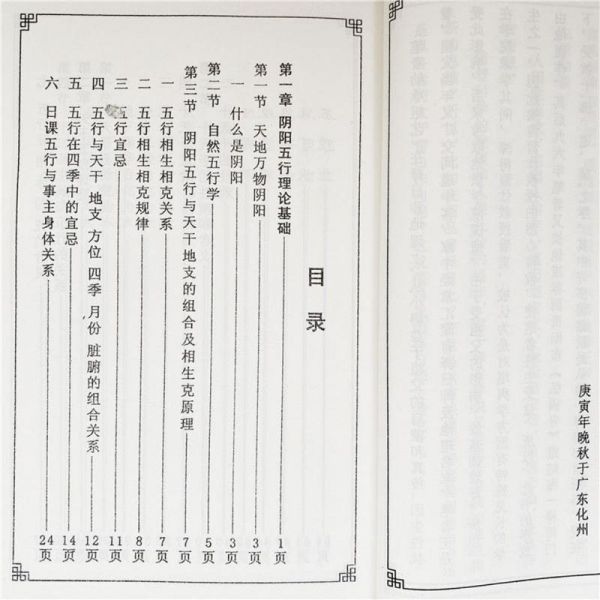 庚寅年晚秋于广东化州
目录
第一章 阴阳五行理论基础 1页
第一节 天地万物阴阳 3页
一 什么是阴阳 3页
第二节 自然五行学 5页
第三节 阴阳五行与天干地支的组合及相生克原理 7页
一 五行相生相克关系 7页
二 五行相生相克规律 8页
三 五行宜忌 11页
四 五行与天干 地支 方位 四季 月份 脏腑的组合关系 12页
五 五行在四季中的宜忌 14页
六 日课五行与事主身体关系 24页